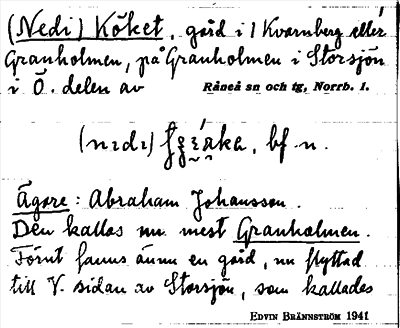 (Nedi) Köket, gård i 1 Kvarnberg eller
Granholmen, på Granholmen i Storsjön
i Ö. delen av Råneå sn och tg, Norrb. l.
bf. n.
Ägare: Abraham Johansson.
Den kallas nu mest Granholmen.
Förut fanns ännu en gård, nu flyttad
till V. sidan av Storsjön, som kallades
EDVIN BRÄNNSTRÖM 1941